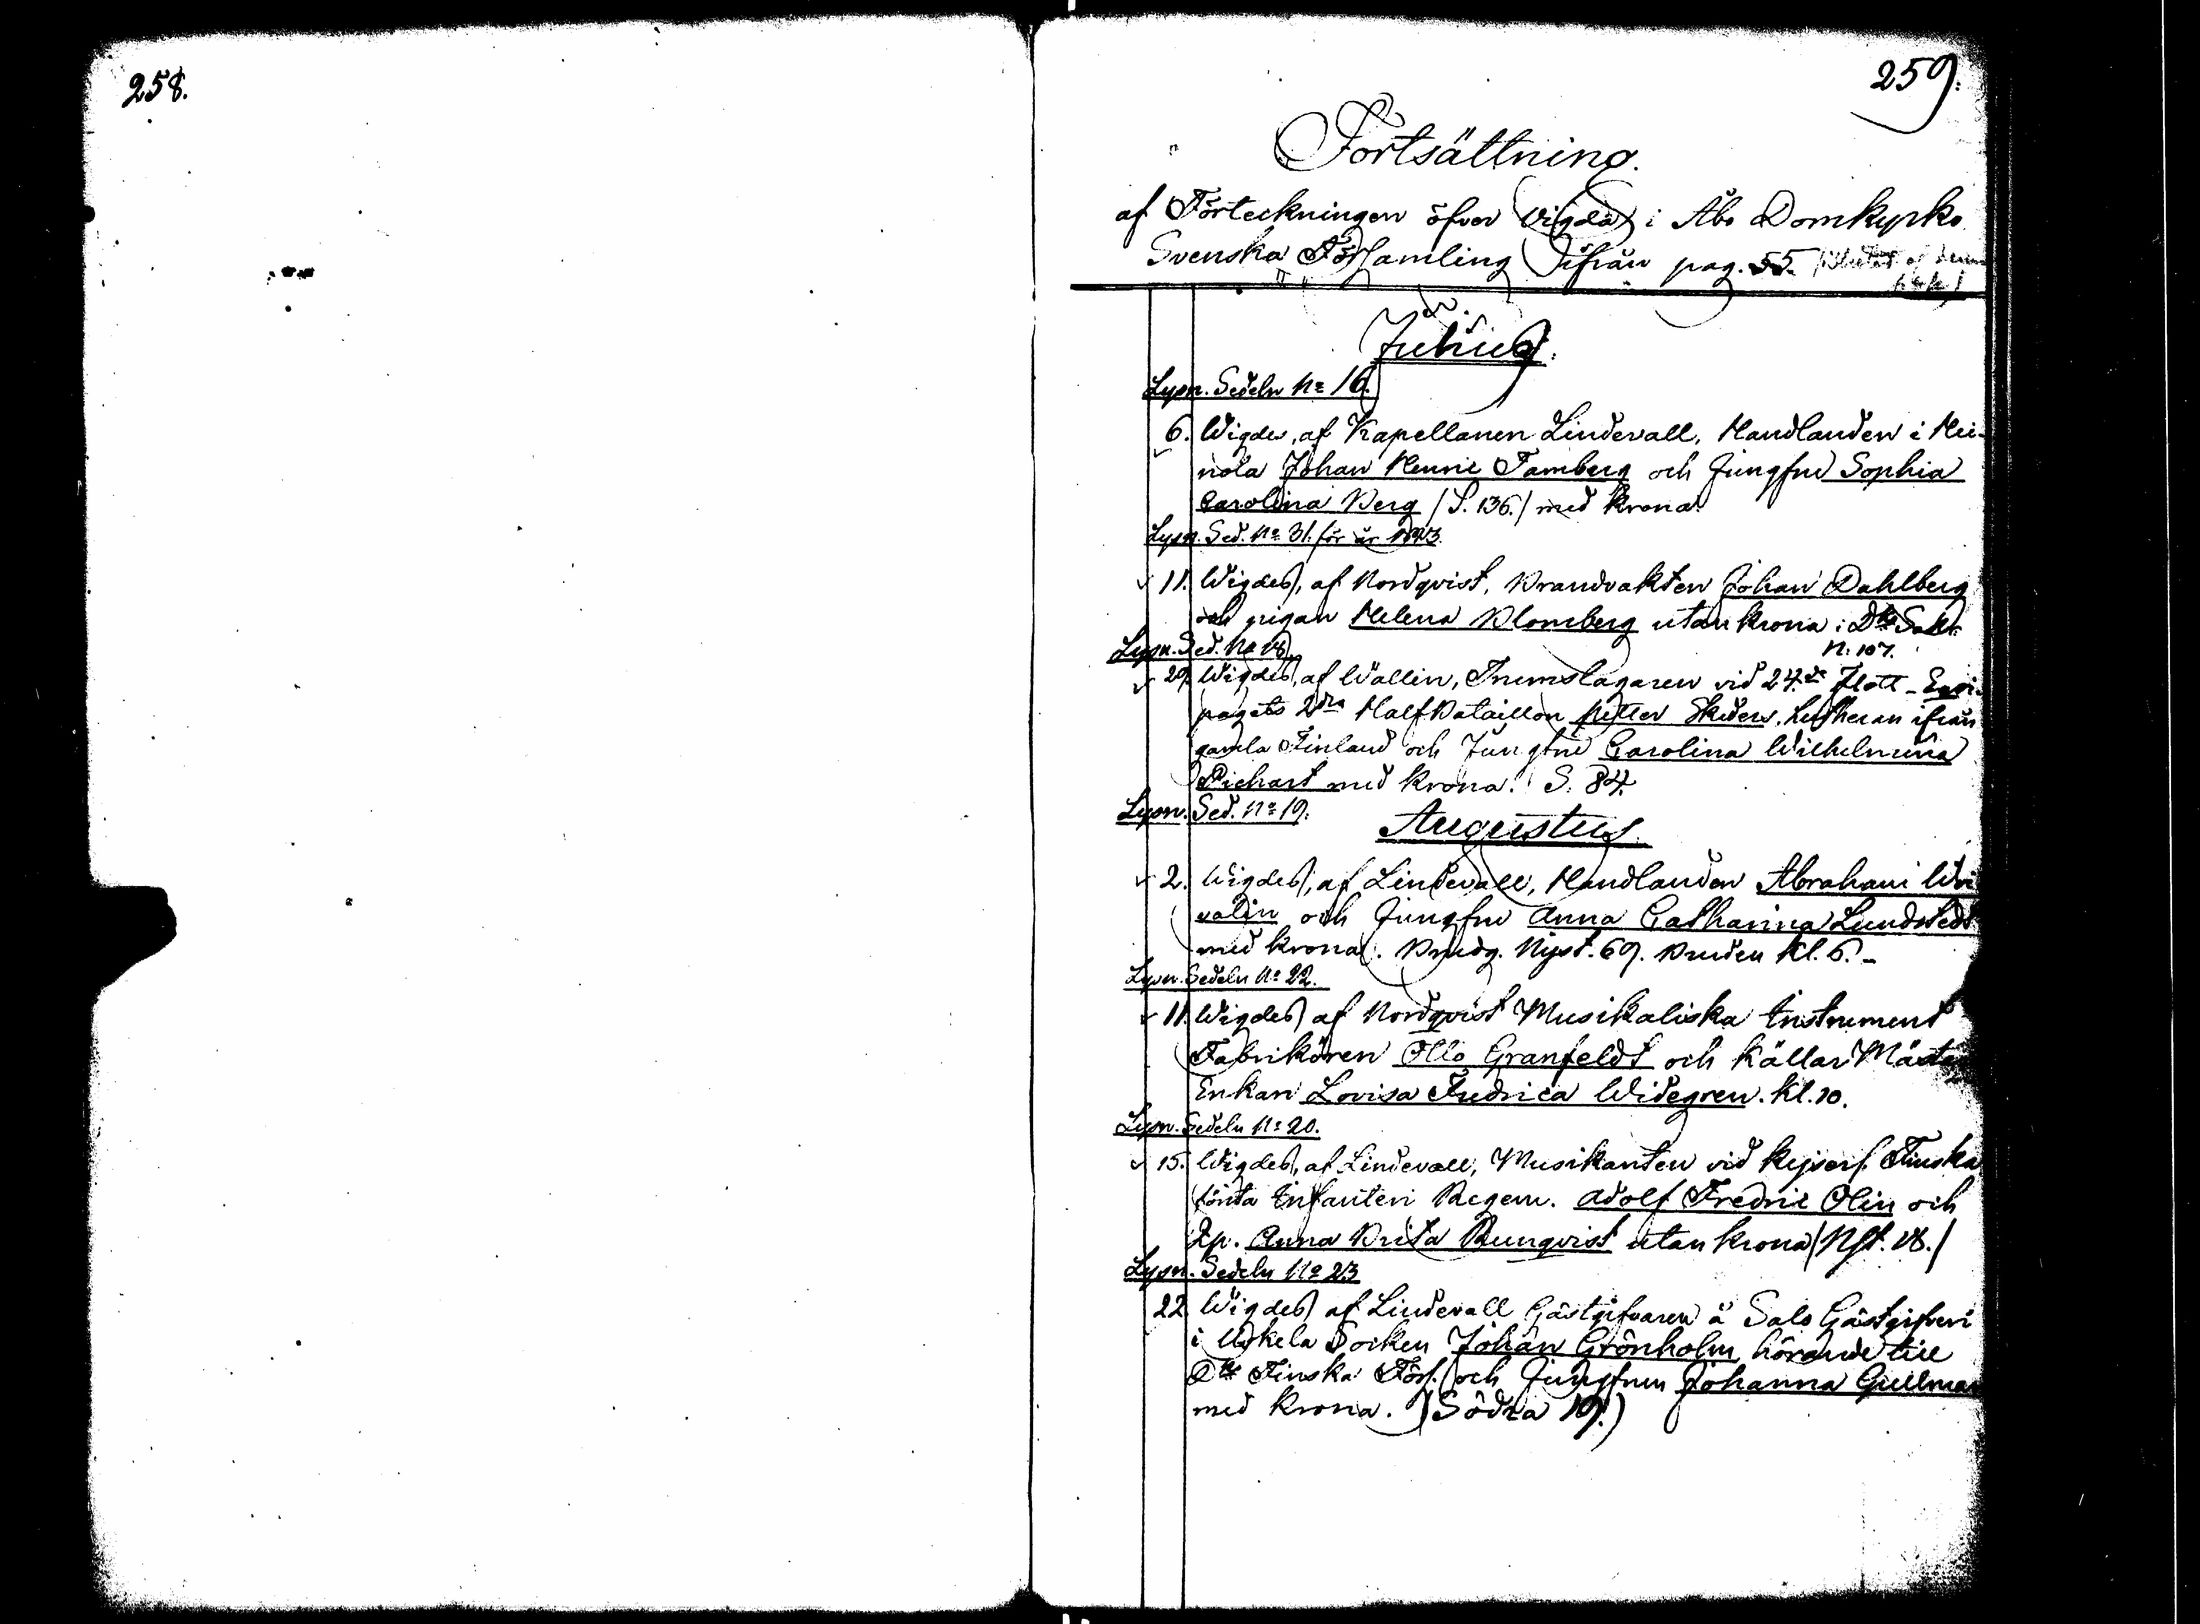 258.
259.
Fortsättning.
af Förteckningen öfver Vigda i Åbo Domkyrko
Svenska Församling ifrån pag. 55.
Julius.
Lysn. Sedeln No 16.
6. Wigdes, af Kapellanen Lindevall, Handlanden i Hei-
nola Johan Henric Tamberg och Jungfru Sophia
Carolina Berg /S. 136./ med krona.
Lysn. Sed. No 31. för år 1823.
11. Wigdes, af Nordqvist, Brandvakten Johan Dahlberg
och pigan Helena Blomberg utan krona
N. 107.
Lysn. Sed. No 18.
29. Wigdes, af Wallin, Trumslagaren vid 24.de Flott-Equi-
pagets 2dra Half Bataillon Petter Skiders, Lutheran ifrån
gamla Finland och Jungfru Carolina Wilhelmina
Richart med krona. S. 84.
Lysn. Sed. No 19.
Augustus.
2. Wigdes, af Lindevall, Handlanden Abraham Wi
valin och Jungfru Anna Catharina Lundstedt
med krona. Brudg. Nyst. 69. Bruden Kl. 6.-
Lysn. Sedeln No 22.
11. Wigdes af Nordqvist Musikaliska Instrument
Fabrikören Otto Granfeldt och Källar Mäste
Enkan Lovisa Fredrica Widegren. Kl. 10.
Lysn. Sedeln No 20.
15. Wigdes, af Lindevall, Musikanten vid Kejserl. Finska
första Infanteri Regem. Adolf Fredric Olin och
Qp. Anna Brita Runqvist utan krona /Nst. 18./
Lysn. Sedeln No 23
22 Wigdes af Lindevall Gästgifvaren å Salo Gästgifveri
i Uskela Socken Johan Grönholm hörande till
Dke Finska Förs. och Jungfrun Johanna Gullman
med krona. (Södra 19.)